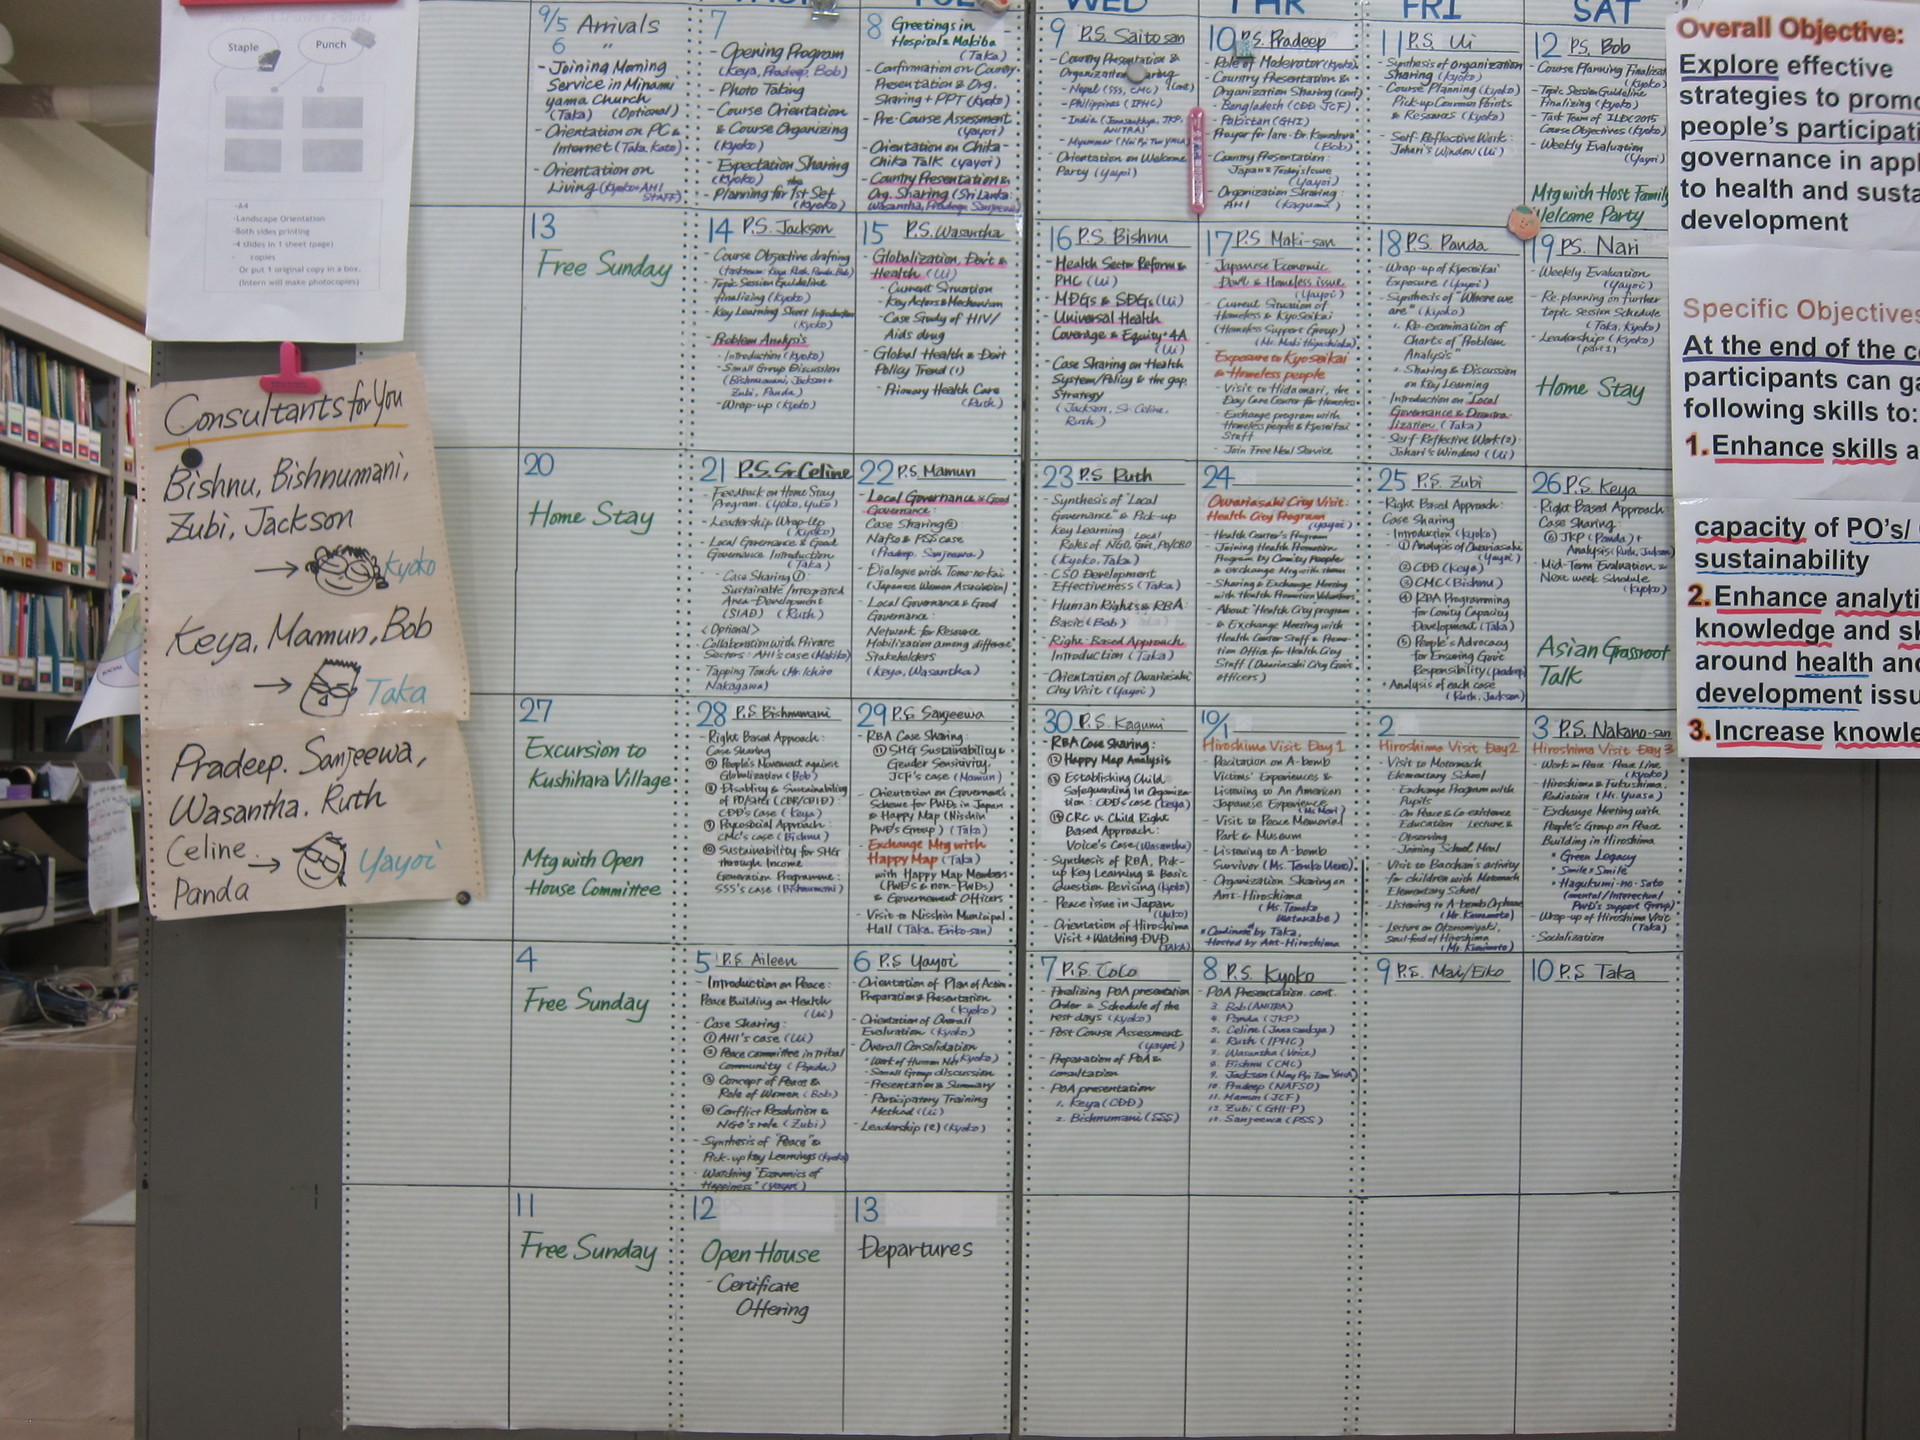 Staple
Punch
-A4
-Landscape Orientation
-Both sides printing
-4 slides in 1 sheet (page)
- copies
Or put 1 original copy in a box.
(Intern will make photocopies)
Consultants for You
Bishnu, Bishnumani,
Zubi, Jackson
→ Kyoko
Keya, Mamun, Bob
→ Taka
Pradeep. Sanjeewa,
Wasantha. Ruth
Celine → Yayoi
Panda
WED
THR
FRI
SAT
9/5 Arrivals
6 "
- Joining Morning
Service in Minami
yama Church
(Taka) (Optional)
- Orientation on PC &
Internet (Taka, Kato)
- Orientation on
Living (Kyoko+AHI
STAFF)
7
- Opening Program
(Keya, Pradeep, Bob)
- Photo Taking
- Course Orientation
& Course Organizing
(Kyoko)
- Expectation Sharing
(Kyoko)
- Planning for the 1st Set
(Kyoko)
8 Greetings in
Hospital & Makiba
(Taka)
- Confirmation on Country
Presentation & Org.
Sharing + PPT (Kyoko)
- Pre-Course Assessment
(Yayoi)
- Orientation on Chika-
Chika Talk (Yayoi)
- Country Presentation &
Org. Sharing (Sri Lanka:
Wasantha, Pradeep Sanjeewa)
9 P.S. Saito san
- Country Presentation &
Organization Sharing
(cont)
- Nepal (SSS, CMC)
- Philippines (IPHC)
Orientation on Welcome
Party (Yayoi)
10 P.S. Pradeep
- Role of Moderator (Kyoko)
- Country Presentation &
Organization Sharing (cont)
- Bangladesh (CDD JCF)
- Pakistan (GHI)
(Bob)
- Country Presentation:
(Yayoi)
- Organization Sharing:
AHI (Kagumi)
11 P.S. Ui
- Synthesis of Organization
Sharing (Kyoko)
- Course Planning (Kyoko)
Pick-up Common Points
(Kyoko)
- Self-Reflective Work:
Johari's Window (Ui)
12 P.S. Bob
- Course Planning Finalizat
(Kyoko)
- Topic Session Guideline
Finalizing (Kyoko)
- Task Team of ILDC 2015
Course Objectives (Kyoko)
- Weekly Evaluation
(Yayoi)
Mtg with Host Family
Welcome Party
13
Free Sunday
14 P.S. Jackson
- Course Objective drafting
- Topic Session Guideline
finalizing (Kyoko)
- Key Learning Sheet Introduction
(Kyoko)
- Problem Analysis
- Introduction (Kyoko)
- Small Group Discussion
(Bishnumani, Jackson+
Zubi, Panda)
- Wrap-up (Kyoko)
15 P.S. Wasantha
- Globalization, Dev't &
Health (Ui)
- Current Situation
- Key Actors & Mechanism
- Case Study of HIV/
Aids drug
- Global Health & Dev't
Policy Trend (1)
- Primary Health Care
(Ruth)
16 P.S. Bishnu
- Health Sector Reform &
PHC (Ui)
- MDGs & SDGs (Ui)
- Universal Health
Coverage & Equity · 4A
(Ui)
- Case Sharing on Health
System/Policy & the gap.
Strategy
(Jackson, Sr. Celine,
Ruth)
17 P.S. Maki-san
- Japanese Economic
Dev't & Homeless issue
(Yayoi)
- Current Situation of
Homeless & Kyoseikai
(Homeless Support Group)
- Exposure to Kyoseikai
& Homeless people
- Visit to Hidamari, the
Day Care Center for Homeless
- Exchange program with
Homeless people & Kyoseikai
Staff
- Join Free Meal Service
18 P.S. Panda
- Wrap-up of Kyoseikai
Exposure (Yayoi)
- Synthesis of "Where we
are" (Kyoko)
1. Re-examination of
Charts of "Problem
Analysis"
2. Sharing & Discussion
on Key Learning
- Introduction on "Local
Governance & Decentra-
lization" (Taka)
- Self Reflective Work (2):
Johari's Window (Ui)
19 P.S. Nari
- Weekly Evaluation
(Yayoi)
- Re-planning on further
Topic Session Schedule
(Taka, Kyoko)
- Leadership (Kyoko)
(part 1)
Home Stay
20
Home Stay
21 P.S. Sr. Celine
- Feedback on Home Stay
Program. (Yoko, Yuko)
- Leadership Wrap-Up
(Kyoko)
- Local Governance & Good
Governance Introduction
(Taka)
- Case Sharing ①
Sustainable/Integrated
Area-Development
(SIAD) (Ruth)
<Optional>
- Collaboration with Private
Sectors: AHI's case (Makiko)
- Tapping Touch (Mr. Ichiro
Nakagawa)
22 P.S. Mamun
- Local Governance & Good
Governance:
Case Sharing ②
Nafso & PSS case
(Pradeep, Sanjeewa)
- Dialogue with Tomo-no-kai
(Japanese Women Association)
- Local Governance & Good
Governance:
Network for Resource
Mobilization among different
Stakeholders
(Keya, Wasantha)
23 P.S. Ruth
- Synthesis of "Local
Governance" & Pick-up
Key Learning
Roles of NGO, Gov't, PO/CBO
(Kyoko, Taka)
- CSO Development
Effectiveness (Taka)
- Human Rights & RBA:
Basic (Bob)
- Right-Based Approach
Introduction (Taka)
- Orientation of Owariasahi
City Visit (Yayoi)
24
Owariasahi City Visit:
Health City Program
(Yayoi)
- Health Center's Program
Joining Health Promotion
- Sharing & Exchange Meeting
with Health Promotion Volunteers
- About "Health City program"
& Exchange Meeting with
Health Center Staff & Promo-
tion Office for Health City
Staff (Owariasahi City Gov't
officers)
25 P.S. Zubi
- Right Based Approach:
Case Sharing
- Introduction (Kyoko)
① Analysis of Owariasahi
(Yayoi)
② CDD (Keya)
③ CMC (Bishnu)
④ RBA Programming
for Comity Capacity
Development (Taka)
⑤ People's Advocacy
for Ensuring Gov't
Responsibility (Pradeep)
* Analysis of each case
(Ruth, Jackson)
26 P.S. Keya
- Right Based Approach
Case Sharing:
⑥ JKP (Panda) +
Analysis (Ruth, Jackson)
- Mid-Term Evaluation &
Next week Schedule
(Kyoko)
Asian Grassroot
Talk
27
Excursion to
Kushihara Village
Mtg with Open
House Committee
28 P.S. Bishnumani
- Right Based Approach:
Case Sharing
⑦ People's Movement against
Globalization (Bob)
⑧ Disability & Sustainability
CDD's Case (Keya)
⑨ Psycosocial Approach:
CMC's case (Bishnu)
⑩ Sustainability for SHG
through Income
Generation Programme:
SSS's case (Bishnumani)
29 P.S. Sanjeewa
- RBA Case Sharing:
⑪ SHG Sustainability &
Gender Sensitivity:
JCF's case (Mamun)
- Orientation on Government
Scheme for PWDs in Japan
& Happy Map (Nisshin
PWD's Group) (Taka)
- Exchange Mtg with
Happy Map (Taka)
with Happy Map Members
(PWDs & non-PWDs)
& Government Officers
- Visit to Nisshin Municipal
Hall (Taka, Eriko-san)
30 P.S. Kagumi
- RBA Case Sharing:
⑫ Happy Map Analysis
⑬ Establishing Child
Safeguarding in Organiza-
tion: CDD's case (Keya)
⑭ CRC vs Child Right
Based Approach:
Voice's Case (Wasantha)
- Synthesis of RBA, Pick-
up Key Learning & Basic
Question Revising (Kyoko)
- Peace issue in Japan
(Yuko)
- Orientation of Hiroshima
Visit + Watching DVD
(TAKA)
10/1
Hiroshima Visit Day 1
- Recitation on A-bomb
Victims' Experiences &
Listening to An American
Japanese Experience
- Visit to Peace Memorial
Park & Museum
- Listening to A-bomb
Survivor (Ms. Tomiko Ueno)
- Organization Sharing on
Ant-Hiroshima
(Ms. Tomoko
Watanabe)
* Coordinate by Taka,
Hosted by Ant-Hiroshima
2
Hiroshima Visit Day 2
- Visit to Motomach
Elementary School
- Exchange Program with
Pupils
- On Peace & Co-existence
Education - Lecture &
Observing
- Joining School Meal
- Visit to Bacchan's activity
for children with Motomach
Elementary School
- Listening to A-bomb Orphan
(Mr. Kawamoto)
- Lecture on Okonomiyaki,
soul food of Hiroshima
3 P.S. Nakano-san
Hiroshima Visit Day 3
- Work on Peace Line
(Kyoko)
- Hiroshima & Fukushima,
Radiation (Mr. Yuasa)
- Exchange Meeting with
People's Group on Peace
Building in Hiroshima
* Green Legacy
* Smile × Smile
* Hagukumi-no-Sato
(mental/Interectual
PWD's support Group)
- Wrap-up of Hiroshima Visit
(Taka)
- Socialization
4
Free Sunday
5 P.S Aileen
- Introduction on Peace:
Peace Building on Health
(Ui)
- Case Sharing:
① AHI's case (Ui)
② Peace committee in Tribal
Community (Panda)
③ Concept of Peace &
Role of Women (Bob)
④ Conflict Resolution &
NGO's role (Zubi)
- Synthesis of "Peace" &
Pick-up key Learnings (Kyoko)
- Watching "Economics of
Happiness" (Yayoi)
6 P.S Yayoi
- Orientation of Plan of Action
Preparation & Presentation
(Kyoko)
- Orientation of Overall
Evaluation (Kyoko)
- Overall Consolidation
- Small Group discussion
- Presentation & Summary
- Participatory Training
Method (Ui)
- Leadership (2) (Kyoko)
7 P.S. CoCo
- Finalizing PoA presentation
Order & Schedule of the
rest days (Kyoko)
- Post Course Assessment
(Yayoi)
- Preparation of PoA &
consultation
- PoA presentation
1. Keya (CDD)
2. Bishnumani (SSS)
8 P.S. Kyoko
- PoA Presentation cont.
3. Bob (ANITRA)
4. Panda (JKP)
5. Celine (Janasankya)
6. Ruth (IPHC)
7. Wasantha (Voice)
8. Bishnu (CMC)
9. Jackson (Nay Pyi Taw YMCA)
10. Pradeep (NAFSO)
11. Mamun (JCF)
12. Zubi (GHI-P)
13. Sanjeewa (PSS)
9 P.S. Mai/Eiko
10 P.S Taka
11
Free Sunday
12
Open House
- Certificate
Offering
13
Departures
Overall Objective:
Explore effective
strategies to promo
people's participati
governance in app
to health and susta
development
Specific Objectives
At the end of the co
participants can ga
following skills to:
1. Enhance skills a
capacity of PO's/
sustainability
2. Enhance analyti
knowledge and sk
around health and
development issu
3. Increase knowle